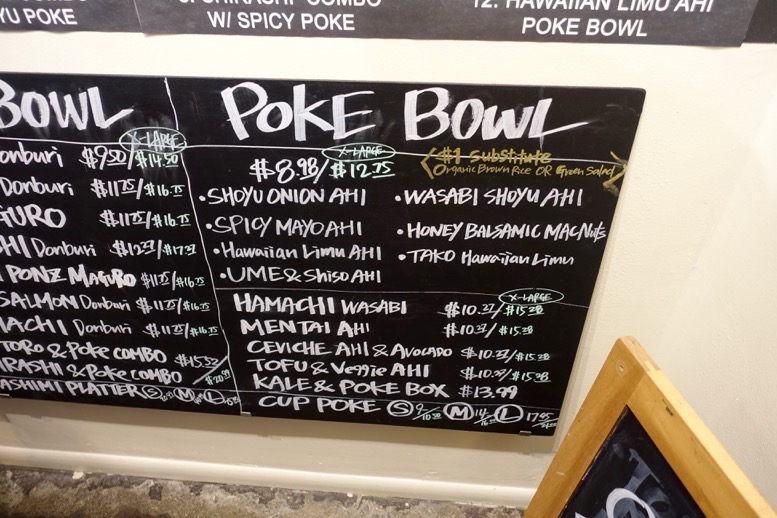 YU POKE
W/ SPICY POKE
12. HAWAIIAN LIMU AHI
POKE BOWL
BOWL
X-LARGE
onburi $9.50/$14.50
Donburi $11.75/$16.75
GURO $11.75/$16.75
HI Donburi
PONZ MAGURO $11.75/$16.75
SALMON Donburi $11.75/$16.75
ACHI Donburi $11.75/$16.75
TORO & Poke COMBO $15.52
IRASHI & Poke COMBO $20.99
ASHIMI PLATTER S M L
POKE BOWL
X-LARGE
$8.98/$12.75
#1 Substitute
Organic Brown Rice OR Green Salad
• SHOYU ONION AHI
• SPICY MAYO AHI
• Hawaiian Limu AHI
• UME & Shiso AHI
• WASABI SHOYU AHI
• HONEY BALSAMIC MAC Nuts
• TAKO Hawaiian Limu
X-LARGE
HAMACHI WASABI $10.27/$15.28
MENTAI AHI $10.27/$15.28
CEVICHE AHI & Avocado $10.27/$15.28
TOFU & Veggie AHI $10.27/$15.28
KALE & POKE BOX $13.99
CUP POKE S M L